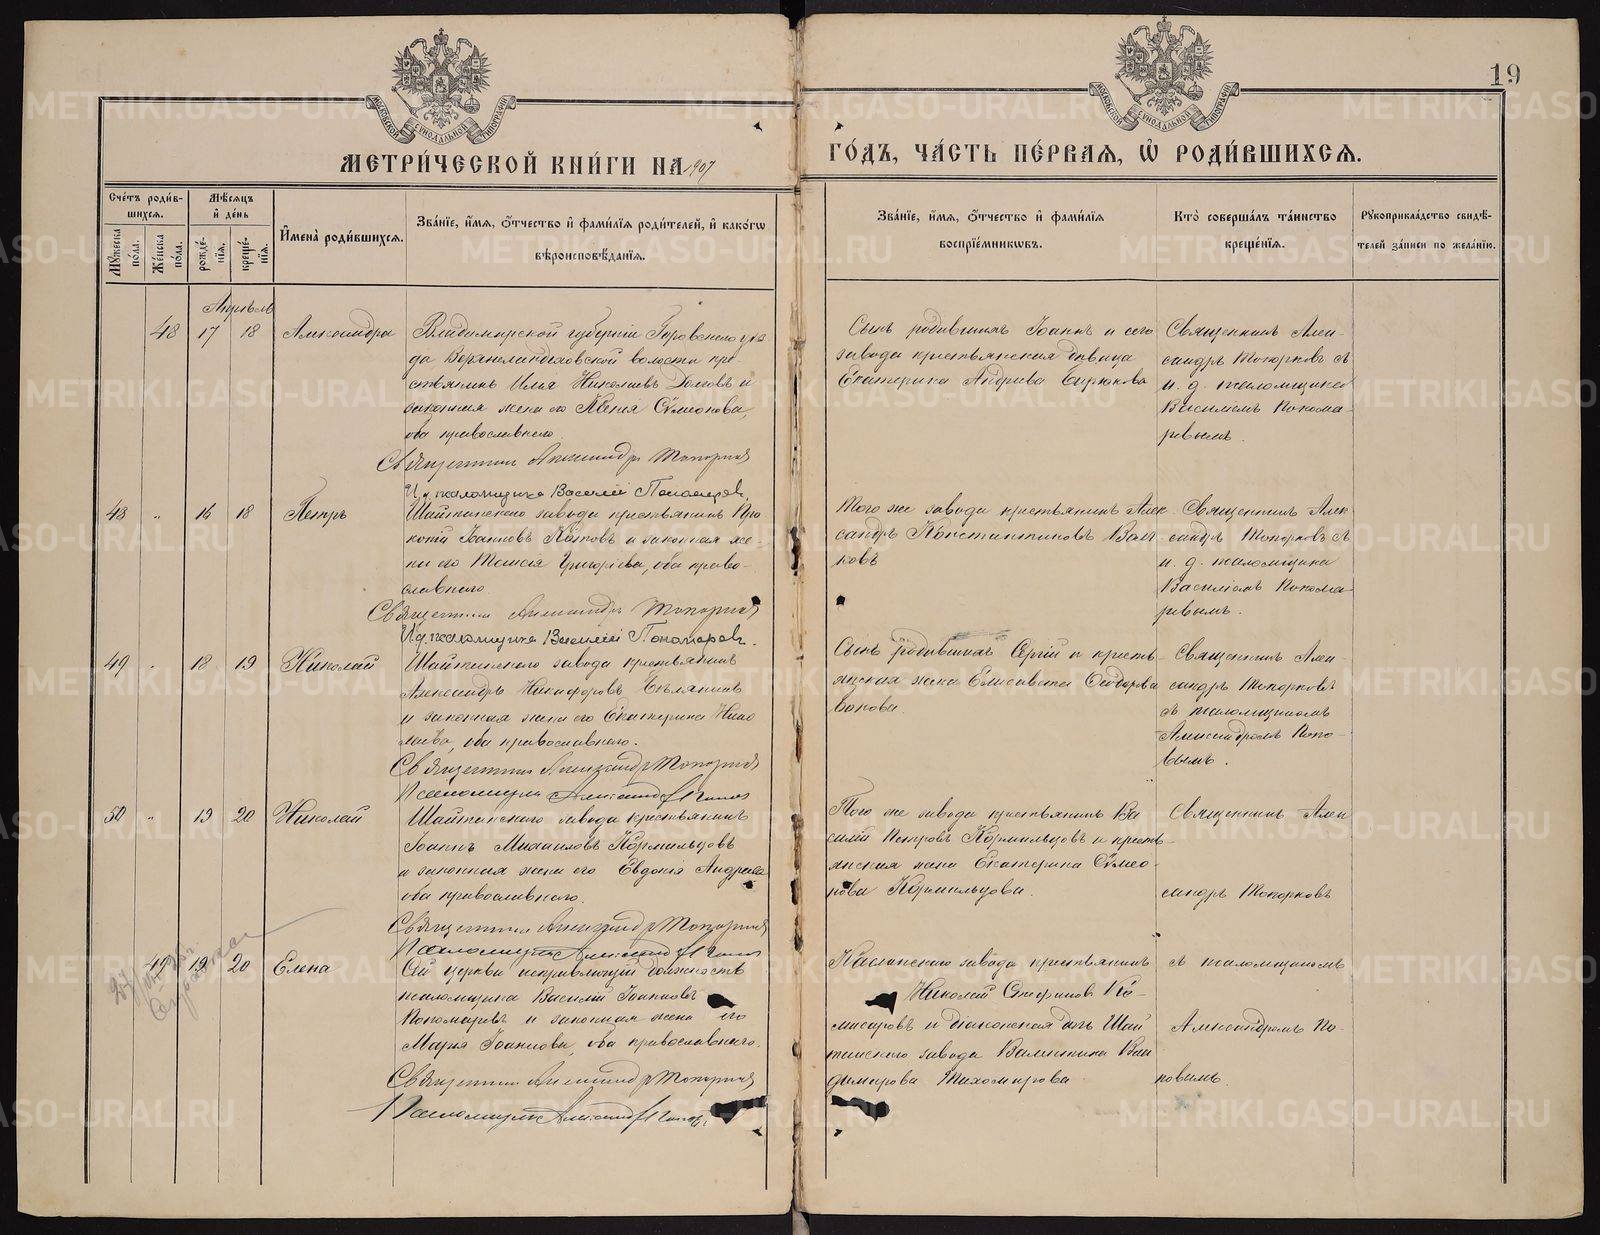 19
МЕТРИ́ЧЕСКОЙ КНИ́ГИ НА 1907
ГО́ДЪ, ЧА́СТЬ ПЕ́РВАЯ, Ѡ РОДИ́ВШИХСЯ.
Сче́тъ роди́в-
шихся.
Мѣ́сяцъ
и҆ де́нь
Мꙋ́жеска по́ла.
Же́нска по́ла.
рожде́-
нїя.
креще́-
нїя.
И҆мена̀ роди́вшихся.
Зва́нїе, и҆́мя, ѻ҆́тчество и҆ фами́лїя роди́телей, и҆ како́гѡ
вѣроисповѣ́данїя.
Зва́нїе, и҆́мя, ѻ҆́тчество и҆ фами́лїя
воспрїе́мникѡвъ.
Кто̀ соверша́лъ та́инство
креще́нїя.
Рꙋкоприкла́дство свидѣ́-
телей за́писи по жела́нїю.
Апрѣль
48 17 18 Александра
Владимирской губерніи Гороховскаго уѣз-
да Верхнеландеховской волости кре-
стьянинъ Илья Николаевъ Долговъ и
законная жена его Ксенія Сѵмеонова,
оба православнаго.
Священникъ Александръ Топорковъ
И. д. псаломщика Василій Пономаревъ.
Сынъ родившихъ Іоаннъ и сего
завода крестьянская дѣвица
Екатерина Андреева Бирюкова
Священникъ Алек-
сандръ Топорковъ съ
и. д. псаломщика
Василіемъ Понома-
ревымъ.
48 " 16 18 Петръ
Шайтанскаго завода крестьянинъ Про
копій Іоанновъ и законная же-
на его Таисія Григоріева, оба право-
славнаго
Священникъ Александръ Топорковъ
И. д. псаломщика Василій Пономаревъ.
Того же завода крестьянинъ Алек
сандръ Константиновъ Вол-
ковъ
Священникъ Алек
сандръ Топорковъ съ
и. д. псаломщика
Василіемъ Понома-
ревымъ.
49 " 18 19 Николай
Шайтанскаго завода крестьянинъ
Александръ Никифоровъ Бѣлянинъ
и законная жена его Екатерина Нико
лаева, оба православнаго.
Священникъ Александръ Топорковъ
Псаломщикъ Александръ Поповъ
Сынъ родившихъ Сергій и кресть-
янская жена Елисавета Ѳеодорова
Священникъ Алек-
сандръ Топорковъ
съ псаломщикомъ
Александромъ Попо-
вымъ.
50 " 19 20 Николай
Шайтанскаго завода крестьянинъ
Іоаннъ Михаиловъ Кормильцовъ
и законная жена его Евдокія Андреева
оба православнаго.
Священникъ Александръ Топорковъ
Псаломщикъ Александръ Поповъ
Того же завода крестьянинъ Ва
силій Петровъ Кормильцовъ и кресть-
янская жена Екатерина Сѵмео-
нова Кормильцова.
Священникъ Алек
сандръ Топорковъ
49 19 20 Елена
Сей церкви исправляющій должность
псаломщика Василій Іоанновъ
Пономаревъ и законная жена его
Марія Іоаннова, оба православнаго.
Священникъ Александръ Топорковъ
Псаломщикъ Александръ Поповъ.
Каслинскаго завода крестьянинъ
Николай Стефановъ Ко-
мисаровъ и діаконская дочь Шай
танскаго завода Валентина Вла
димирова Тихомирова
съ псаломщикомъ
Александромъ По-
повымъ.
METRIKI.GASO-URAL.RU